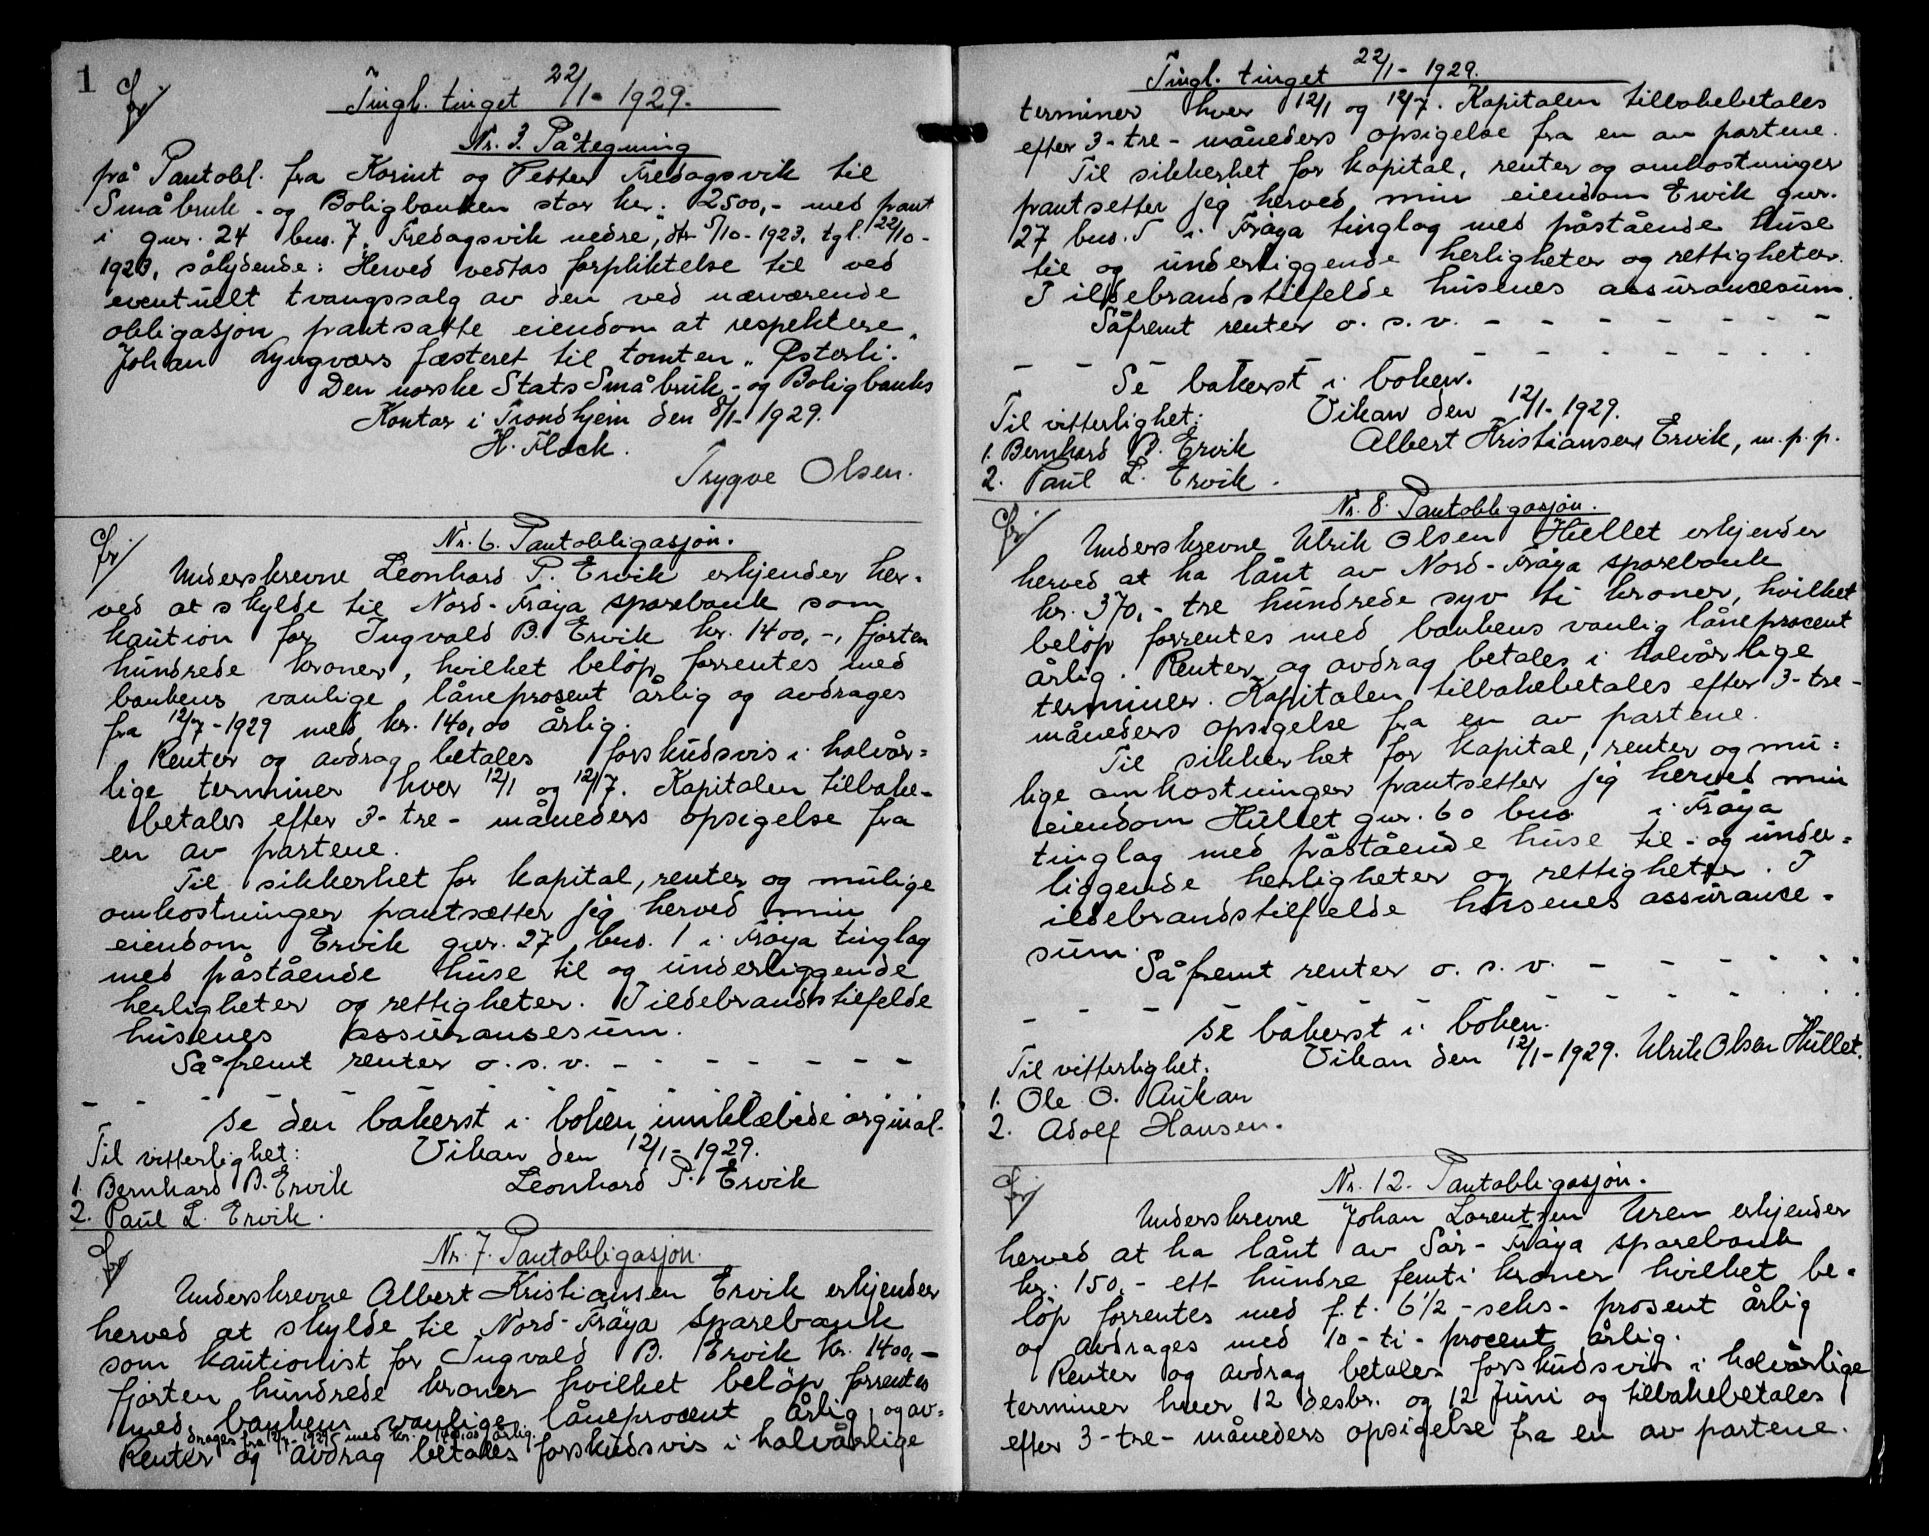 1
Tingl. tinget 22/1- 1929.
Nr. 3. Påtegning
på Pantobl. fra Korint og Petter Fredagsvik til
Småbruk- og Boligbanken stor kr. 2500,- med pant
i gnr. 24 bno. 7 "Fredagsvik nedre", dtr 5/10-1923, tgl. 22/10-
1923, sålydende: Herved vedtas forpliktelse til ved
eventuelt tvangssalg av den ved nærværende
obligasjon pantsatte eiendom at respektere
Johan Lyngværs festeret til tomten "Østerli".
Den norske Stats Småbruk- og Boligbanks
Kontor i Trondhjem den 8/1-1929.
H. Flack.
Trygve Olsen.
Nr. 6. Pantobligasjon.
Underskrevne Leonhard P. Ervik erkjender her-
ved at skylde til Nord-Frøya sparebank som
kaution for Ingvald B. Ervik kr. 1400,-, fjorten
hundrede kroner, hvilket beløp forrentes med
bankens vanlige låneprosent årlig og avdrages
fra 12/7-1929 med kr. 140,00 årlig.
Renter og avdrag betales forskudsvis i halvår=
lige terminer hver 12/1 og 12/7. Kapitalen tilbake-
betales efter 3-tre- måneders opsigelse fra
en av partene.
Til sikkerhet for kapital, renter og mulige
omkostninger pantsætter jeg herved min
eiendom Ervik gnr. 27 bno. 1 i Frøya tinglag
med påstående huse til og underliggende
herligheter og rettigheter. I ildebrandstilfelde
husenes assuransesum.
Såfremt renter o. s. v. - - - - - -
- - - se den bakerst i boken innklæbede orginal.
Til vitterlighet: Vikan den 12/1-1929.
1. Bernhard B. Ervik Leonhard P. Ervik
2. Paul L. Ervik.
Nr. 7. Pantobligasjon.
Underskrevne Albert Kristiansen Ervik erkjender
herved at skylde til Nord-Frøya Sparebank
som kautionist for Ingvald B. Ervik kr. 1400,-
fjorten hundrede kroner hvilket beløp forrentes
med bankens vanlige låneprocent årlig, og av=
drages fra 12/7-1929 med kr. 140,00 årlig.
Renter og avdrag betales forskudsvis i halvårlige
Tingl. tinget 22/1- 1929.
terminer hver 12/1 og 12/7. Kapitalen tilbakebetales
efter 3-tre- måneders opsigelse fra en av partene.
Til sikkerhet for kapital, renter og omkostninger
pantsetter jeg herved min eiendom Ervik gnr.
27 bno. 5 i Frøya tinglag med påstående huse
til og underliggende herligheter og rettigheter.
I ildebrandstilfelde husenes assurancesum.
Såfremt renter o. s. v. - - - - - - -
- - Se bakerst i boken. - - - - - -
Til vitterlighet: Vikan den 12/1-1929.
1. Bernhard B. Ervik Albert Kristiansen Ervik, m. p. p.
2. Paul L. Ervik.
Nr. 8. Pantobligasjon.
Underskrevne Ulrik Olsen Hullet erkjender
herved at ha lånt av Nord-Frøya sparebank
kr. 370,- tre hundrede syv ti kroner, hvilket
beløp forrentes med bankens vanlig låneprocent
årlig. Renter og avdrag betales i halvårlige
terminer. Kapitalen tilbakebetales efter 3-tre-
måneders opsigelse fra en av partene.
Til sikkerhet for kapital, renter og mu=
lige omkostninger pantsetter jeg herved min
eiendom Hullet gnr. 60 bno i Frøya
tinglag med påstående huse til- og under=
liggende herligheter og rettigheter. I
ildebrandstilfelde husenes assurance-
sum.
Såfremt renter o. s. v. - - - - - -
- - - se bakerst i boken.
Til vitterlighet. Vikan den 12/1-1929. Ulrik Olsen Hullet.
1. Ole O. Aukan
2. Adolf Hansen.
Nr. 12. Pantobligasjon.
Underskrevne Johan Lorentzen Uren erkjender
herved at ha lånt av Sør-Frøya sparebank
kr. 150,- ett hundre femti kroner hvilket be-
løp forrentes med f.t. 6 1/2 -seks- prosent årlig
og avdrages med 10-ti- procent årlig.
Renter og avdrag betales forskudsvis i halvårlige
terminer hver 12 desbr. og 12 juni og tilbakebetales
efter 3-tre- måneders opsigelse fra en av partene.